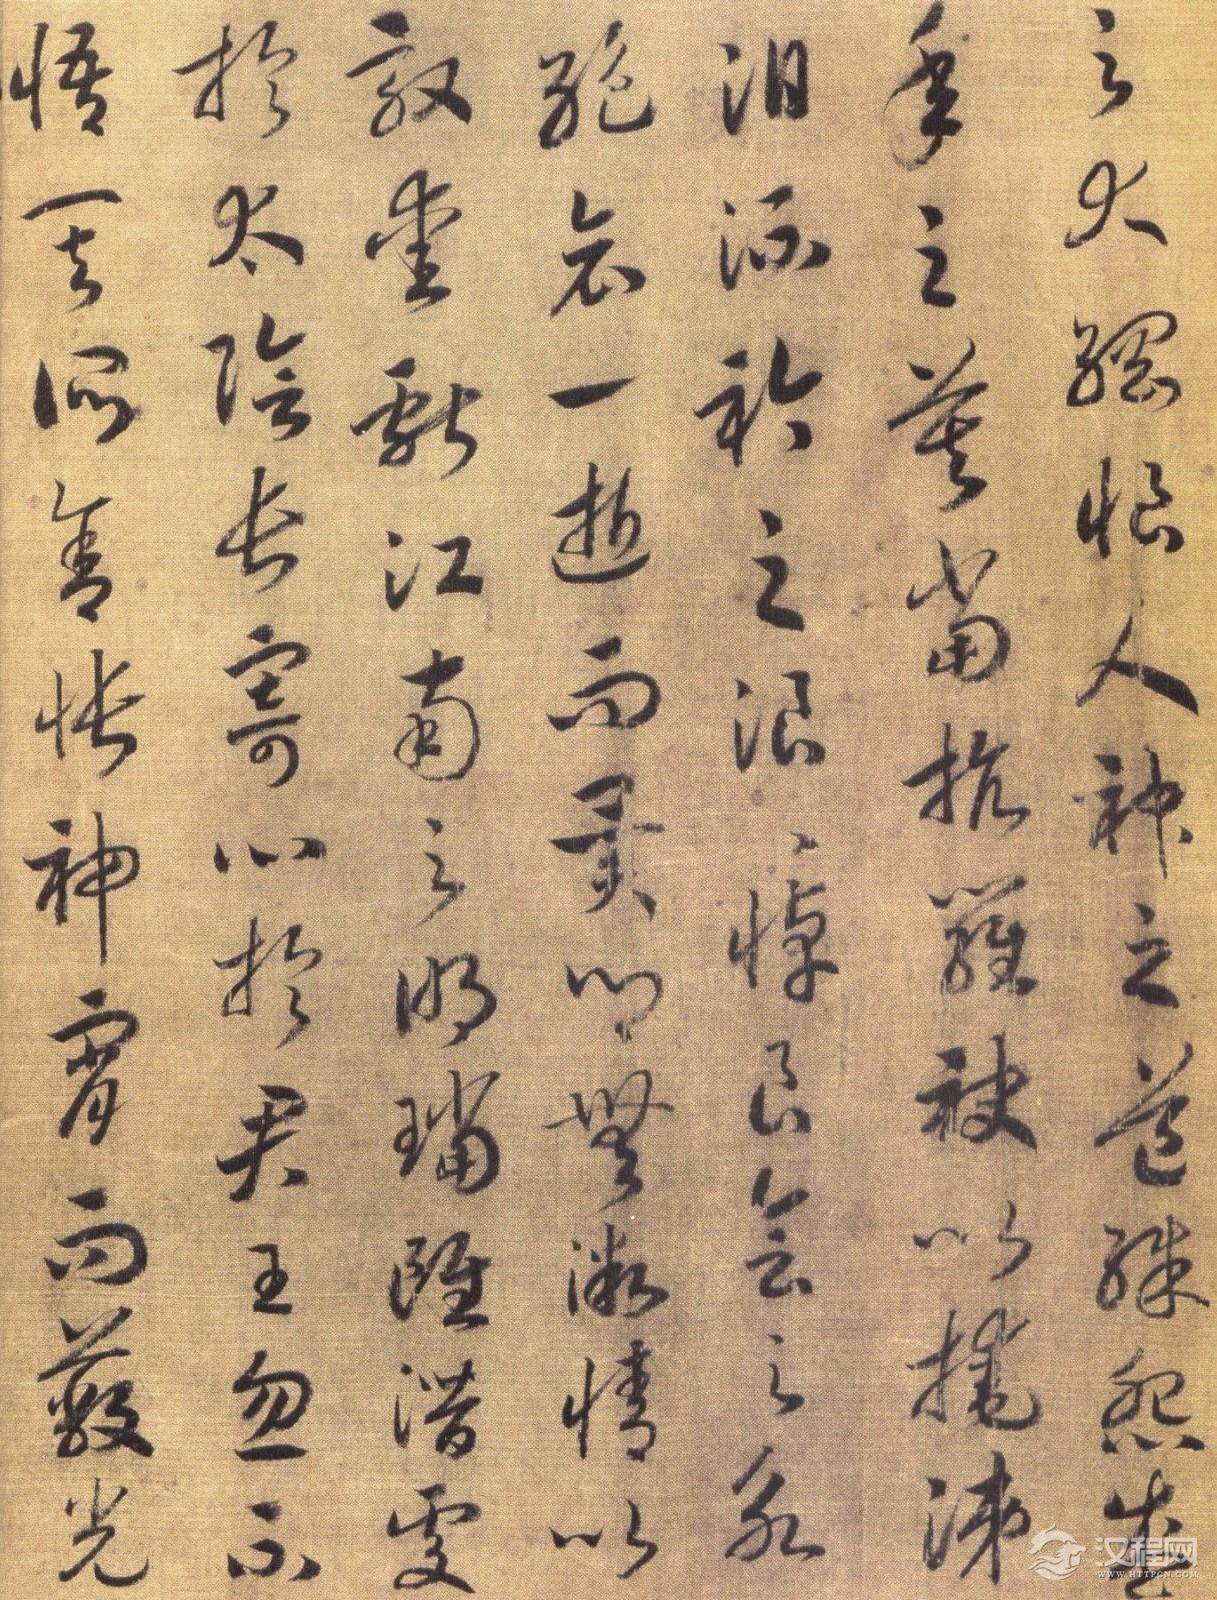 之大綱恨人神之道殊怨盛
年之莫當抗羅袂以掩涕
泪流衿之浪〻悼良會之永
絕哀一逝而異鄉無微情以
效愛獻江南之明璫雖潛處
於太陰長寄心於君王忽不
悟其所舍悵神宵而蔽光
汉程网
WWW.HTTPCN.COM